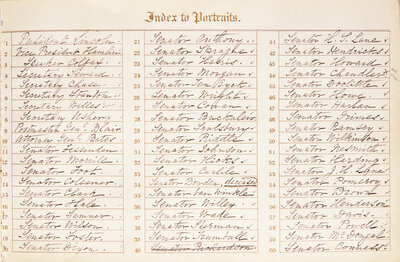 Index to Portraits.
1 President Lincoln
2 Vice President Hamlin
3 Speaker Colfax
4 Secretary Seward
5 Secretary Chase
6 Secretary Stanton
7 Secretary Welles
8 Secretary Usher
9 Postmaster Genl Blair
10 Attorney Genl Bates
11 Senator Fessenden
12 Senator Morrill
13 Senator Foot
14 Senator Collamer
15 Senator Clark
16 Senator Hale
17 Senator Sumner
18 Senator Wilson
19 Senator Foster
20 Senator Dixon
21 Senator Anthony
22 Senator Sprague
23 Senator Harris
24 Senator Morgan
25 Senator Ten Eyck
26 Senator Wright
27 Senator Cowan
28 Senator Buckalew
29 Senator Saulsbury
30 Senator Riddle
31 Senator Johnson
32 Senator Hicks
33 Senator Carlile
34 Senator Bowden, deceased
35 Senator Van Winkle
36 Senator Willey
37 Senator Wade
38 Senator Sherman
39 Senator Trumbull
40 Senator Richardson
41 Senator H. S. Lane
42 Senator Hendricks
43 Senator Howard
44 Senator Chandler
45 Senator Doolittle
46 Senator Howe
47 Senator Harlan
48 Senator Grimes
49 Senator Ramsey
50 Senator Wilkinson
51 Senator Nesmith
52 Senator Harding
53 Senator J. H. Lane
54 Senator Pomeroy
55 Senator Brown
56 Senator Henderson
57 Senator Davis
58 Senator Powell
59 Senator McDougal
60 Senator Conness